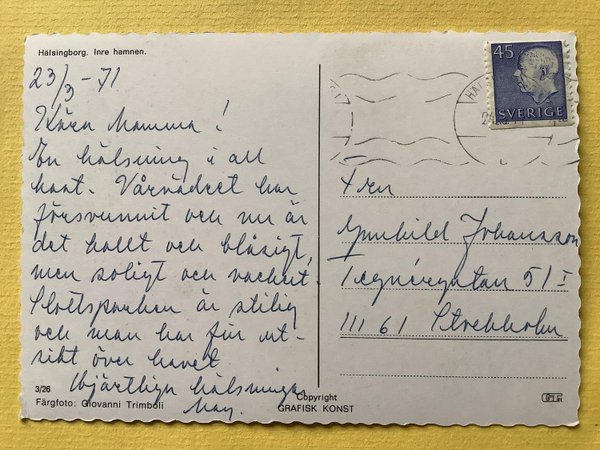 Hälsingborg. Inre hamnen.
23/3 - 71
Kära Mamma!
En hälsning i all
hast. Vårvädret har
försvunnit och nu är
det kallt och blåsigt,
men soligt och vackert.
Slottsparken är stilig
och man har fin ut-
sikt över havet.
Hjärtliga hälsningar
May.
3/26
Färgfoto: Giovanni Trimboli
Copyright
GRAFISK KONST
45
SVERIGE
Fru
Gunhild Johansson
Tegnérgatan 51 I
111 61 Stockholm